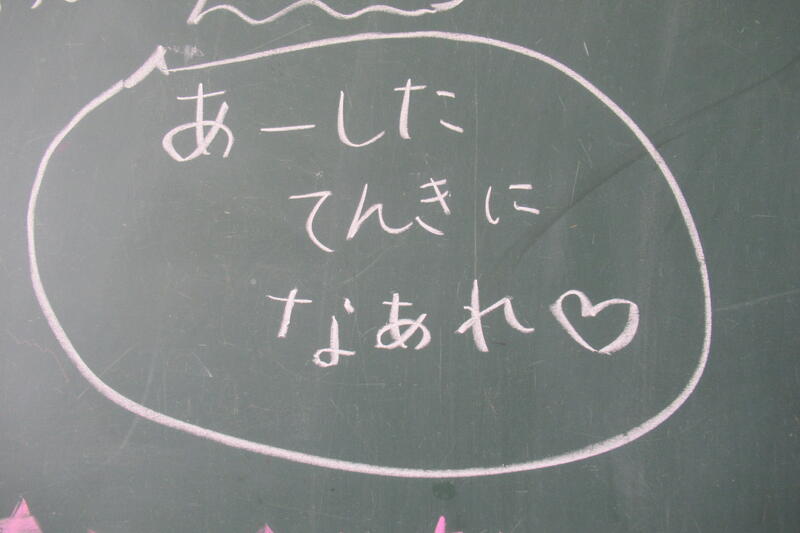 あーした
てんきに
なあれ♡